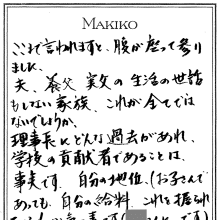 MAKIKO
ここまで言われますと、腹が座って参り
ました。
夫、養父、実父の生活の世話
もしない家族、これが全てでは
ないでしょうか。
理事長にどんな過去があれ、
学校の貢献者であることは、
事実です。自分の地位、(お子さんで
あっても、自分の給料、これを握られ